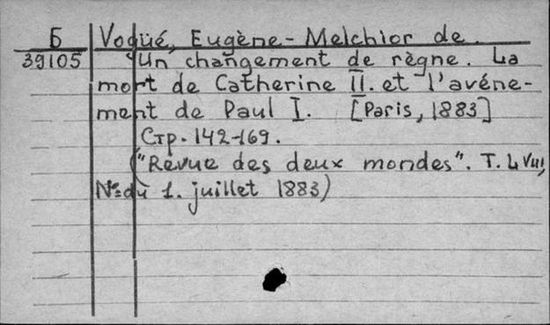 Б Vogüé, Eugène-Melchior de.
39105 Un changement de règne. La
mort de Catherine II. et l'avéne-
ment de Paul I. [Paris, 1883]
Стр. 142-169.
("Revue des deux mondes". T. LVIII,
№ du 1. juillet 1883)